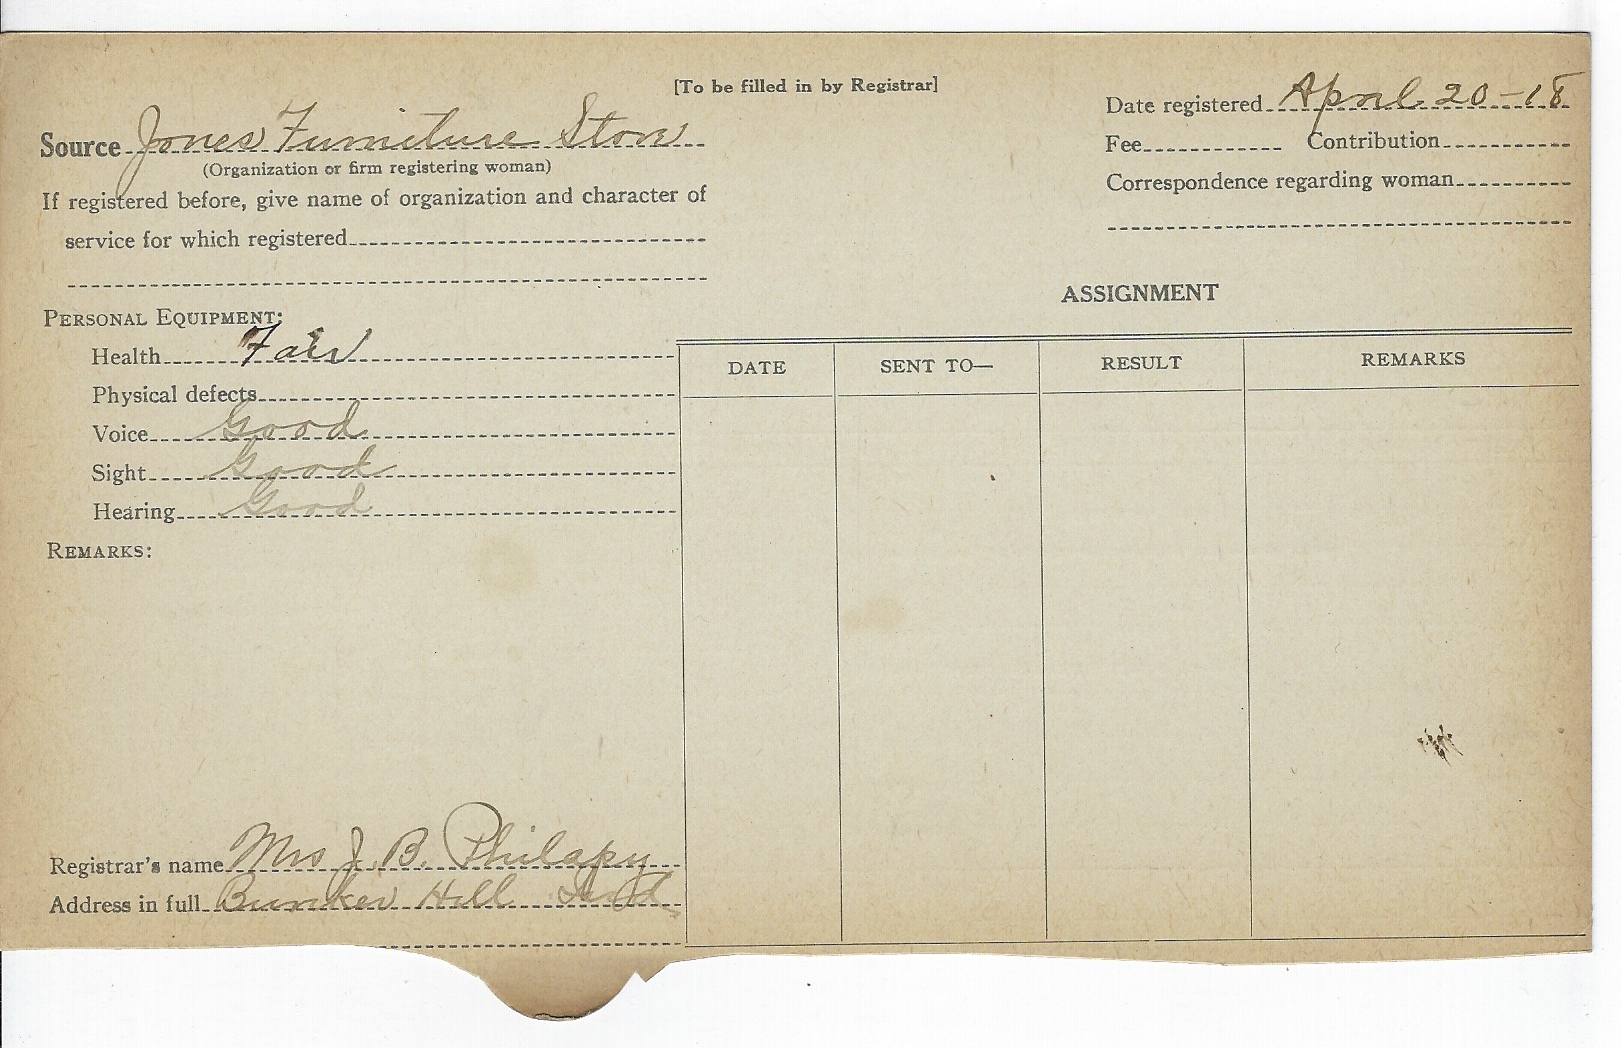 [To be filled in by Registrar]
Date registered April 20-18
Source Jones Furniture Store
(Organization or firm registering woman)
Fee Contribution
Correspondence regarding woman
If registered before, give name of organization and character of
service for which registered
ASSIGNMENT
PERSONAL EQUIPMENT:
Health Fair
Physical defects
Voice Good
Sight Good
Hearing Good
DATE SENT TO— RESULT REMARKS
REMARKS:
Registrar's name Mrs J. B. Philapy
Address in full Bunker Hill Ind